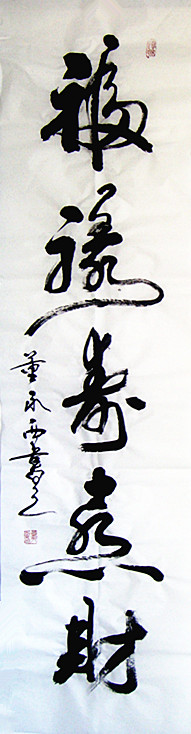 福禄寿喜财
董永西书之